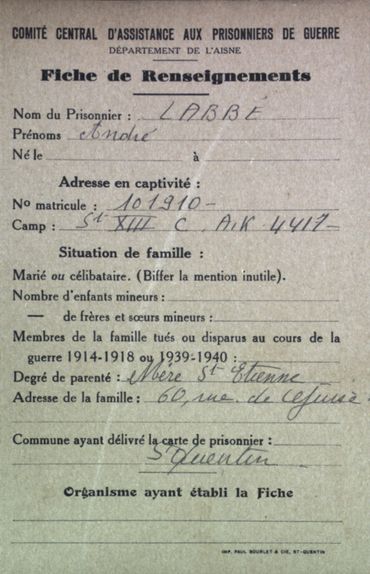 COMITÉ CENTRAL D'ASSISTANCE AUX PRISONNIERS DE GUERRE
DÉPARTEMENT DE L'AISNE
Fiche de Renseignements
Nom du Prisonnier : LABBÉ
Prénoms André
Né le à
Adresse en captivité :
No matricule : 101910 -
Camp : St XIII C A.K 4417 -
Situation de famille :
Marié ou célibataire. (Biffer la mention inutile).
Nombre d'enfants mineurs :
— de frères et sœurs mineurs :
Membres de la famille tués ou disparus au cours de la
guerre 1914-1918 ou 1939-1940 :
Degré de parenté : Mère St Etienne
Adresse de la famille : 60, rue de
Commune ayant délivré la carte de prisonnier :
St Quentin
Organisme ayant établi la Fiche
IMP. PAUL BOURLET & CIE, ST-QUENTIN